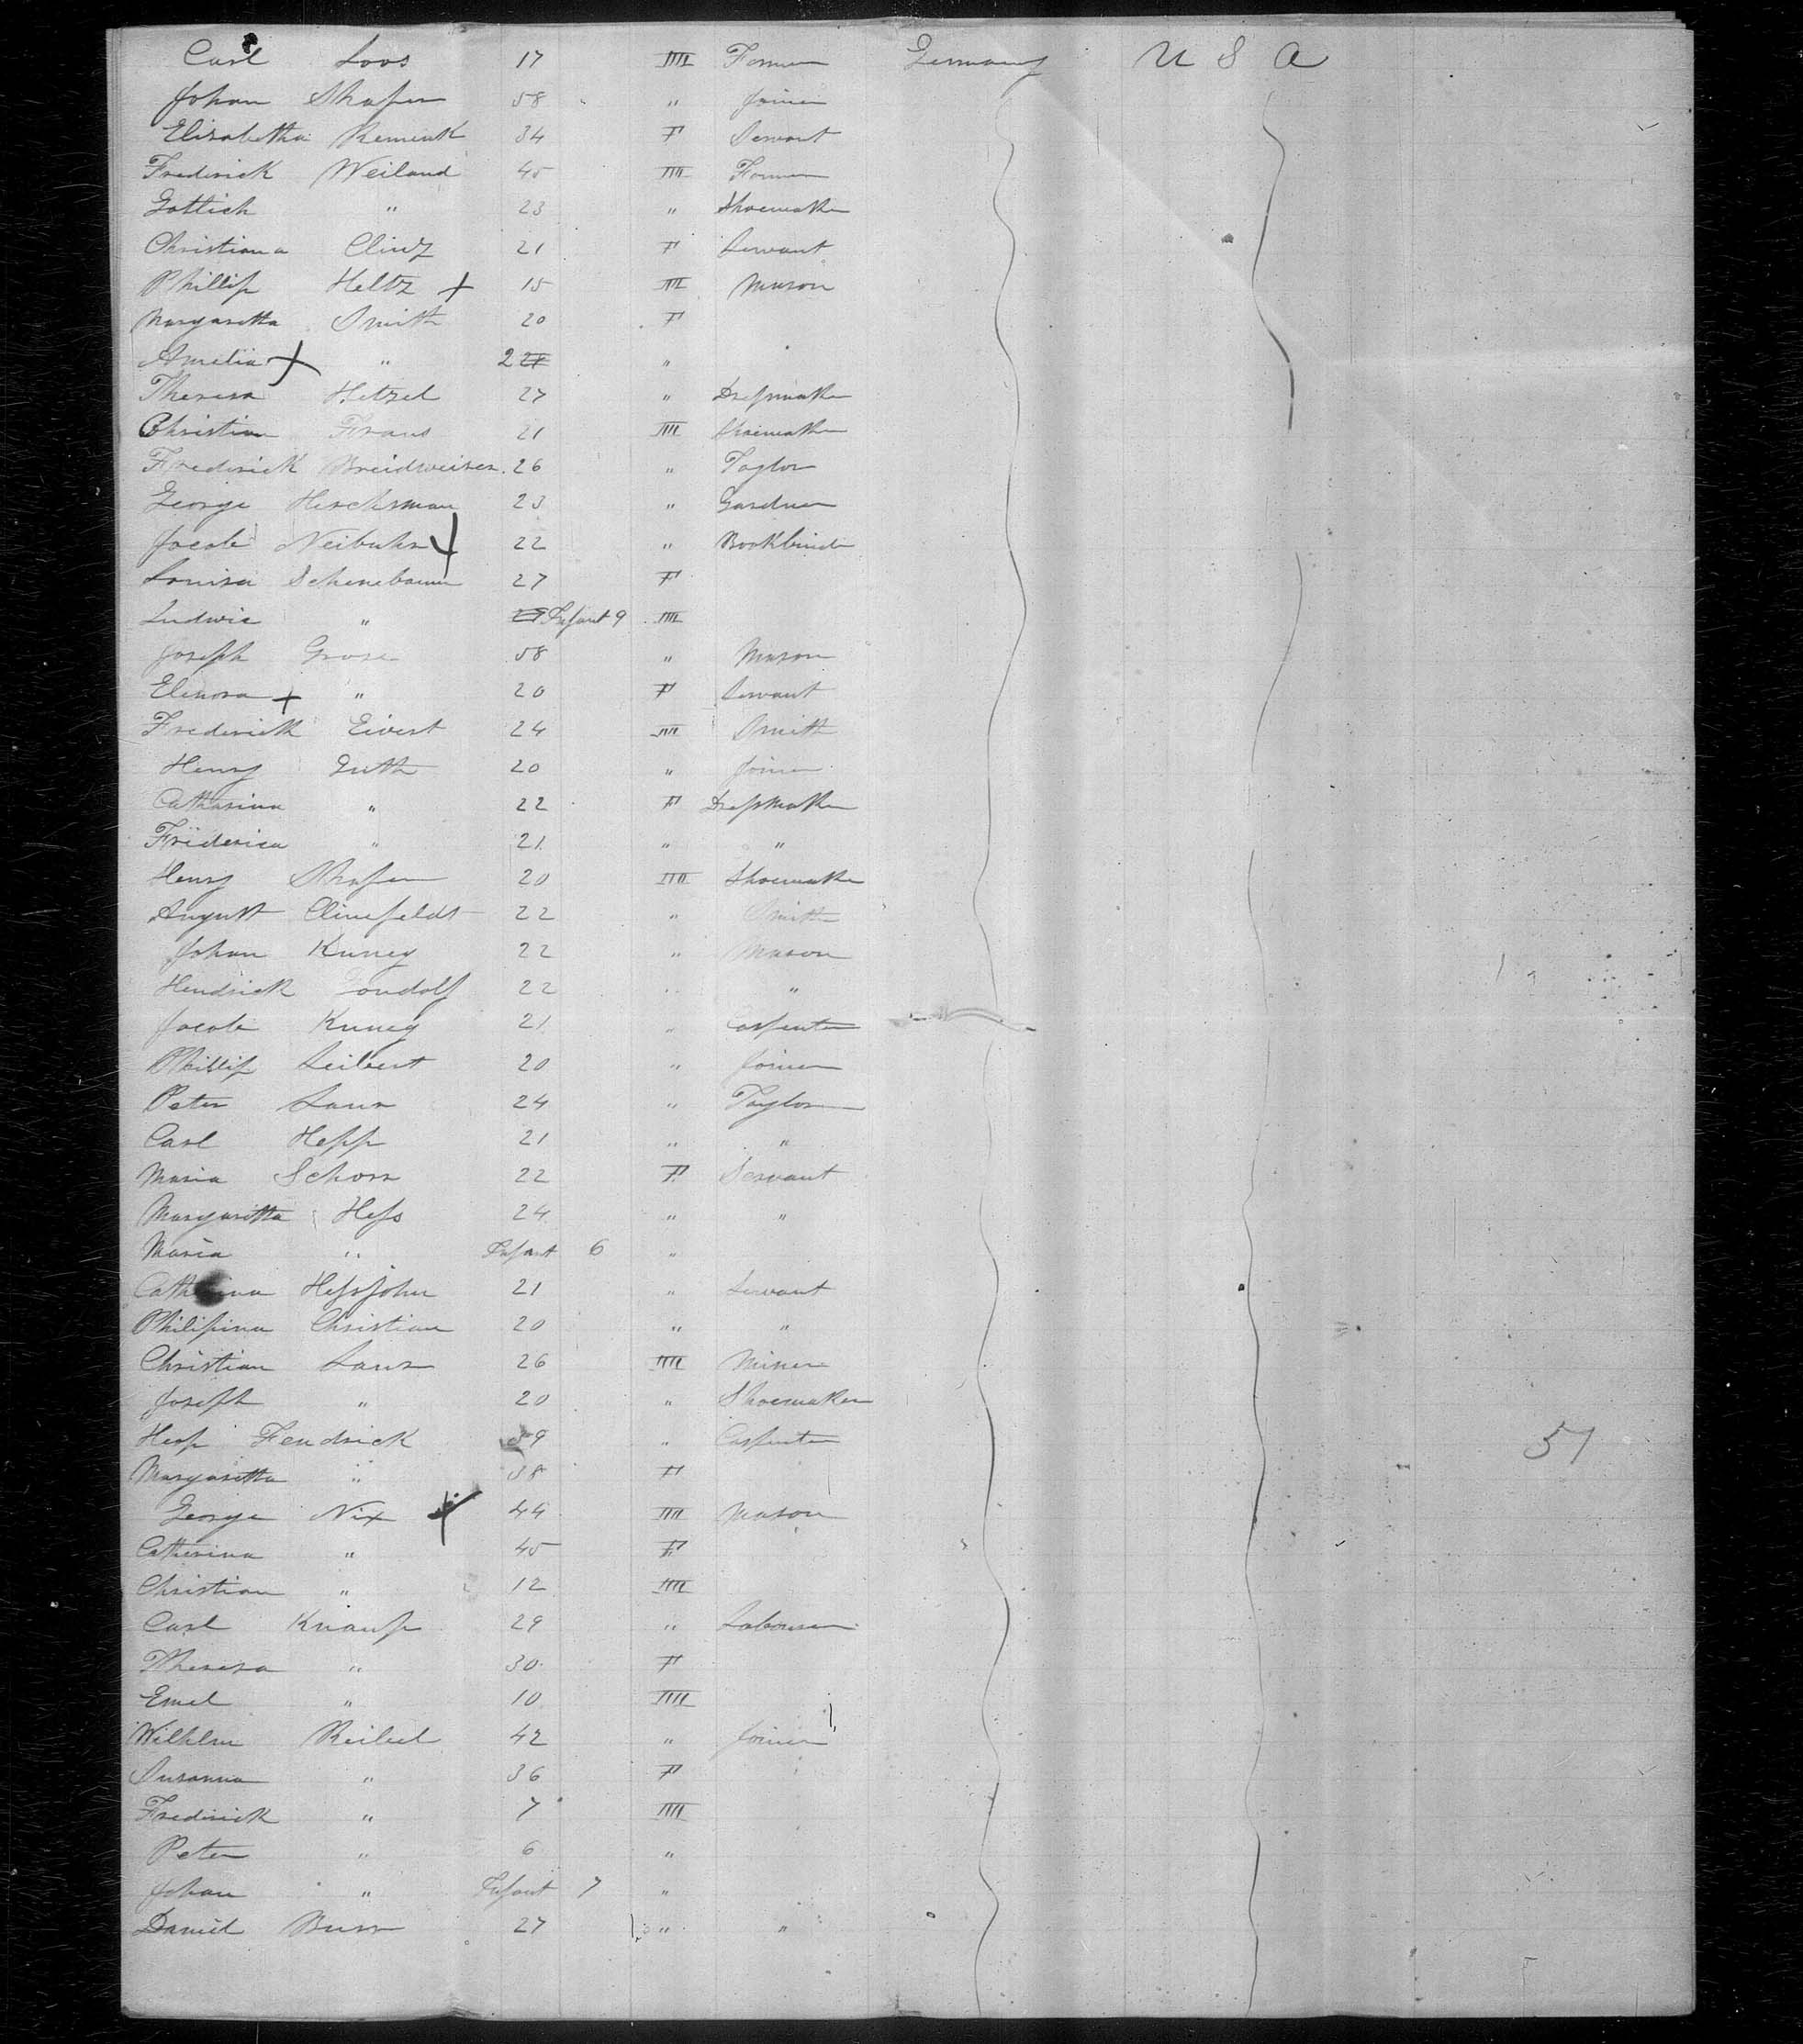 Carl Loos 17 M Farmer Germany U S A
Johan Shafer 58 " Joiner
Elisabetha 34 F Servant
Frederick Weiland 45 M Farmer
" 23 " Shoemaker
Christiana 21 F Servant
Phillip Heltz + 15 M Mason
Margaretta Smith 20 F
Amelia + " 2 "
Theresa Hetzel 27 " Dressmaker
Christian Frans 21 M Shoemaker
Frederick Breidweiser 26 " Taylor
George Herchsman 23 " Gardner
Jacob Neibuhr + 22 " Bookbinder
Louisa Schenebaum 27 F
Ludwic " Infant 9 M
Joseph Grose 58 " Mason
Elenora + " 20 F Servant
Frederick Eivert 24 M Smith
Henry Guth 20 " Joiner
Catharina " 22 F Dressmaker
Friderica " 21 " "
Henry Shafer 20 M Shoemaker
August Clinefeldt 22 " Smith
Johan Kuney 22 " Mason
Hendrick 22 " "
Jacob Kuney 21 " Carpenter
Phillip Leibert 20 " Joiner
Peter Laur 24 " Taylor
Carl Hepp 21 " "
Maria Schorr 22 F Servant
Margaritta Hess 24 " "
Maria " Infant 6 "
Catharina Hessjohn 21 " Servant
Philipina Christian 20 " "
Christian Laur 26 M Miner
Joseph " 20 " Shoemaker
Fendrick 39 " Carpenter
Margaretta " 38 F
George Nix 44 M Mason
Catherina " 45 F
Christian " 12 M
Carl Knaup 29 " Labourer
Theresa " 30 F
Emel " 10 M
Wilhlm Reibel 42 " Joiner
Susanna " 36 F
Frederick " 7 M
Peter " 6 "
Johan " Infant 7 "
Daniel Burr 27 " "
51